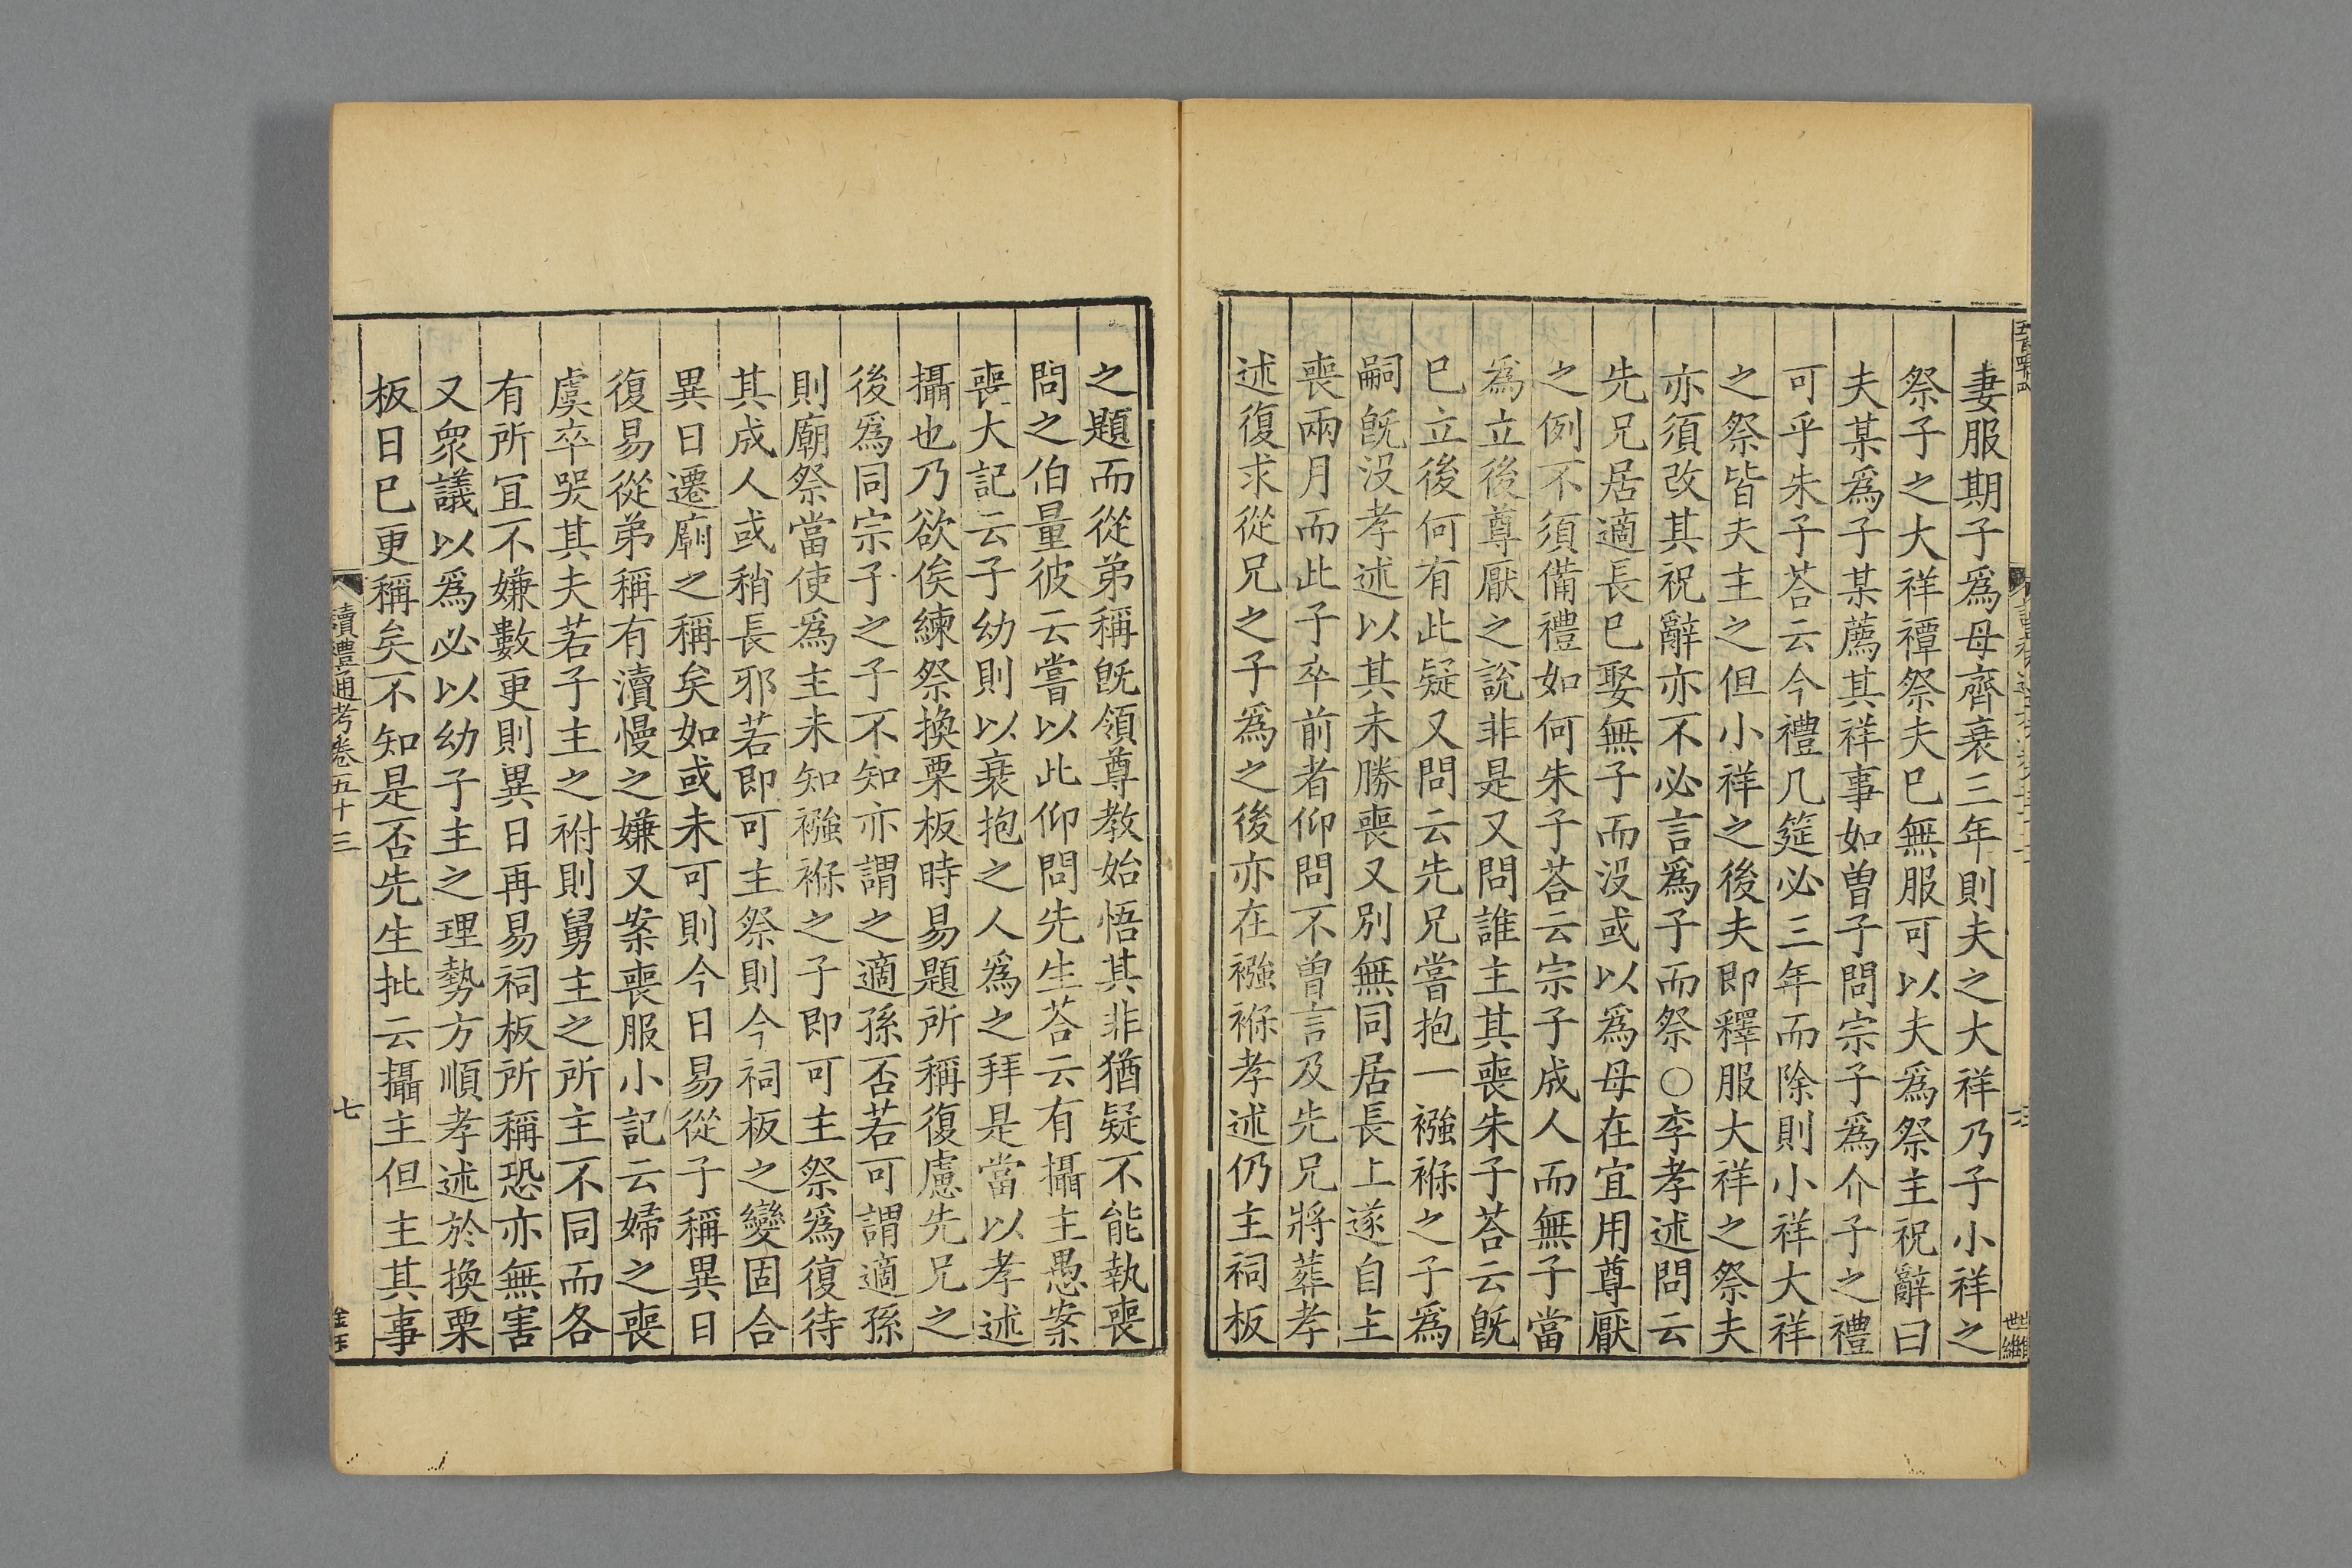 妻服期子爲母齊衰三年則夫之大祥乃子小祥之
祭子之大祥禫祭夫巳無服可以夫爲祭主祝辭曰
夫某爲子某薦其祥事如曾子問宗子爲介子之禮
可乎朱子荅云今禮几筵必三年而除則小祥大祥
之祭皆夫主之但小祥之後夫即釋服大祥之祭夫
亦須改其祝辭亦不必言爲子而祭○李孝述問云
先兄居適長巳娶無子而沒或以爲母在宜用尊厭
之例不須備禮如何朱子荅云宗子成人而無子當
爲立後尊厭之說非是又問誰主其喪朱子荅云旣
巳立後何有此疑又問云先兄嘗抱一襁褓之子爲
嗣旣沒孝述以其未勝喪又別無同居長上遂自主
喪兩月而此子卒前者仰問不曾言及先兄將葬孝
述復求從兄之子爲之後亦在襁褓孝述仍主祠板
之題而從弟稱旣領尊教始悟其非猶疑不能執喪
問之伯量彼云嘗以此仰問先生荅云有攝主愚案
喪大記云子幼則以衰抱之人爲之拜是當以孝述
攝也乃欲俟練祭換栗板時易題所稱復慮先兄之
後爲同宗子之子不知亦謂之適孫否若可謂適孫
則廟祭當使爲主未知襁褓之子即可主祭爲復待
其成人或稍長邪若即可主祭則今祠板之變固合
異日遷廟之稱矣如或未可則今日易從子稱異日
復易從弟稱有瀆慢之嫌又案喪服小記云婦之喪
虞卒哭其夫若子主之祔則舅主之所主不同而各
有所冝不嫌數更則異日再易祠板所稱恐亦無害
又衆議以爲必以幼子主之理勢方順孝述於換栗
板日巳更稱矣不知是否先生批云攝主但主其事
讀禮通考卷五十三
七